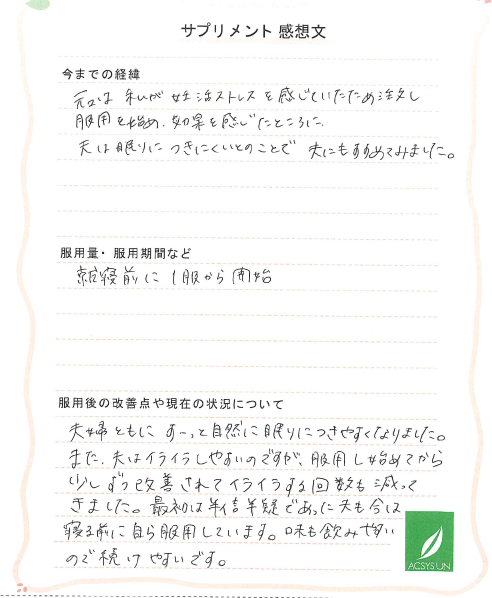 サプリメント 感想文
今までの経緯
元々は私が妊活ストレスを感じていたため注文し
服用を始め、効果を感じたところに、
夫は眠りにつきにくいとのことで 夫にもすすめてみました。
服用量・服用期間など
就寝前に1服から開始
服用後の改善点や現在の状況について
夫婦ともに すーっと自然に眠りにつきやすくなりました。
また、夫はイライラしやすいのですが、服用し始めてから
少しずつ改善されてイライラする回数も減って
きました。最初は半信半疑であった夫も今は
寝る前に自ら服用しています。味も飲みやすい
ので続けやすいです。
ACSYS UN